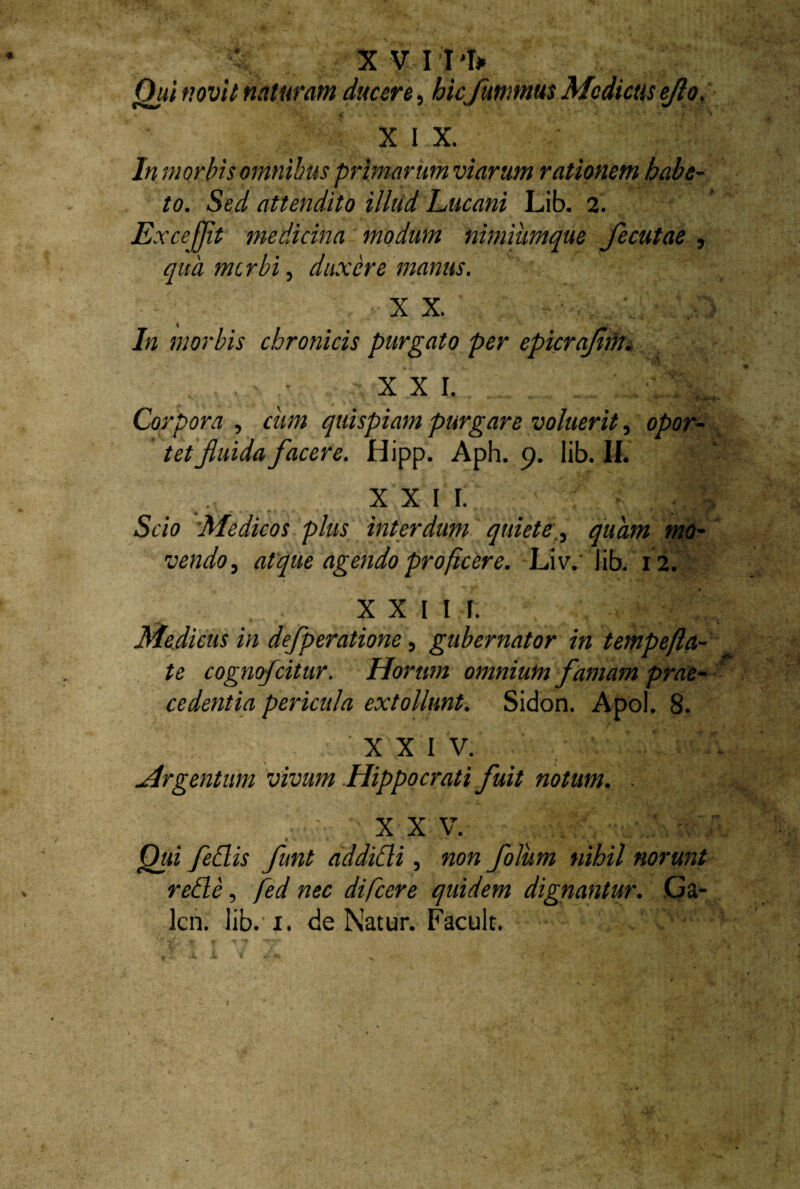 X V I I I.
Qui novit naturam ducere, hic ſummus Medicus eſto.
X I X.
In morbis omnibus primarum viarum rationem habe-
to. Sed attendito illud Lucani Lib. 2.
Exceſſit medicina modum nimiumque ſecutae ,
quà morbi, duxère manus.
X X.
In morbis chronicis purgato per epicraſim.
X X I.
Corpora , cùm quispiam purgare voluerit, opor-
tet fluida facere. Hipp. Aph. 9. lib. II.
X X I I.
Scio Medicos plus interdum quiete, quàm mo-
vendo, atque agendo proficere. Liv. lib. 12.
X X I I I.
Medicus in deſperatione, gubernator in tempeſta-
te cognoſcitur. Horum omnium famam prae-
cedentia pericula extollunt. Sidon. Apol. 8.
X X I V.
Argentum vivum Hippocrati fuit notum.
X X V.
Qui ſectis ſunt addicti, non ſolùm nihil norunt
rectè, ſed nec diſcere quidem dignantur. Ga-
len. lib. 1. de Natur. Facult.